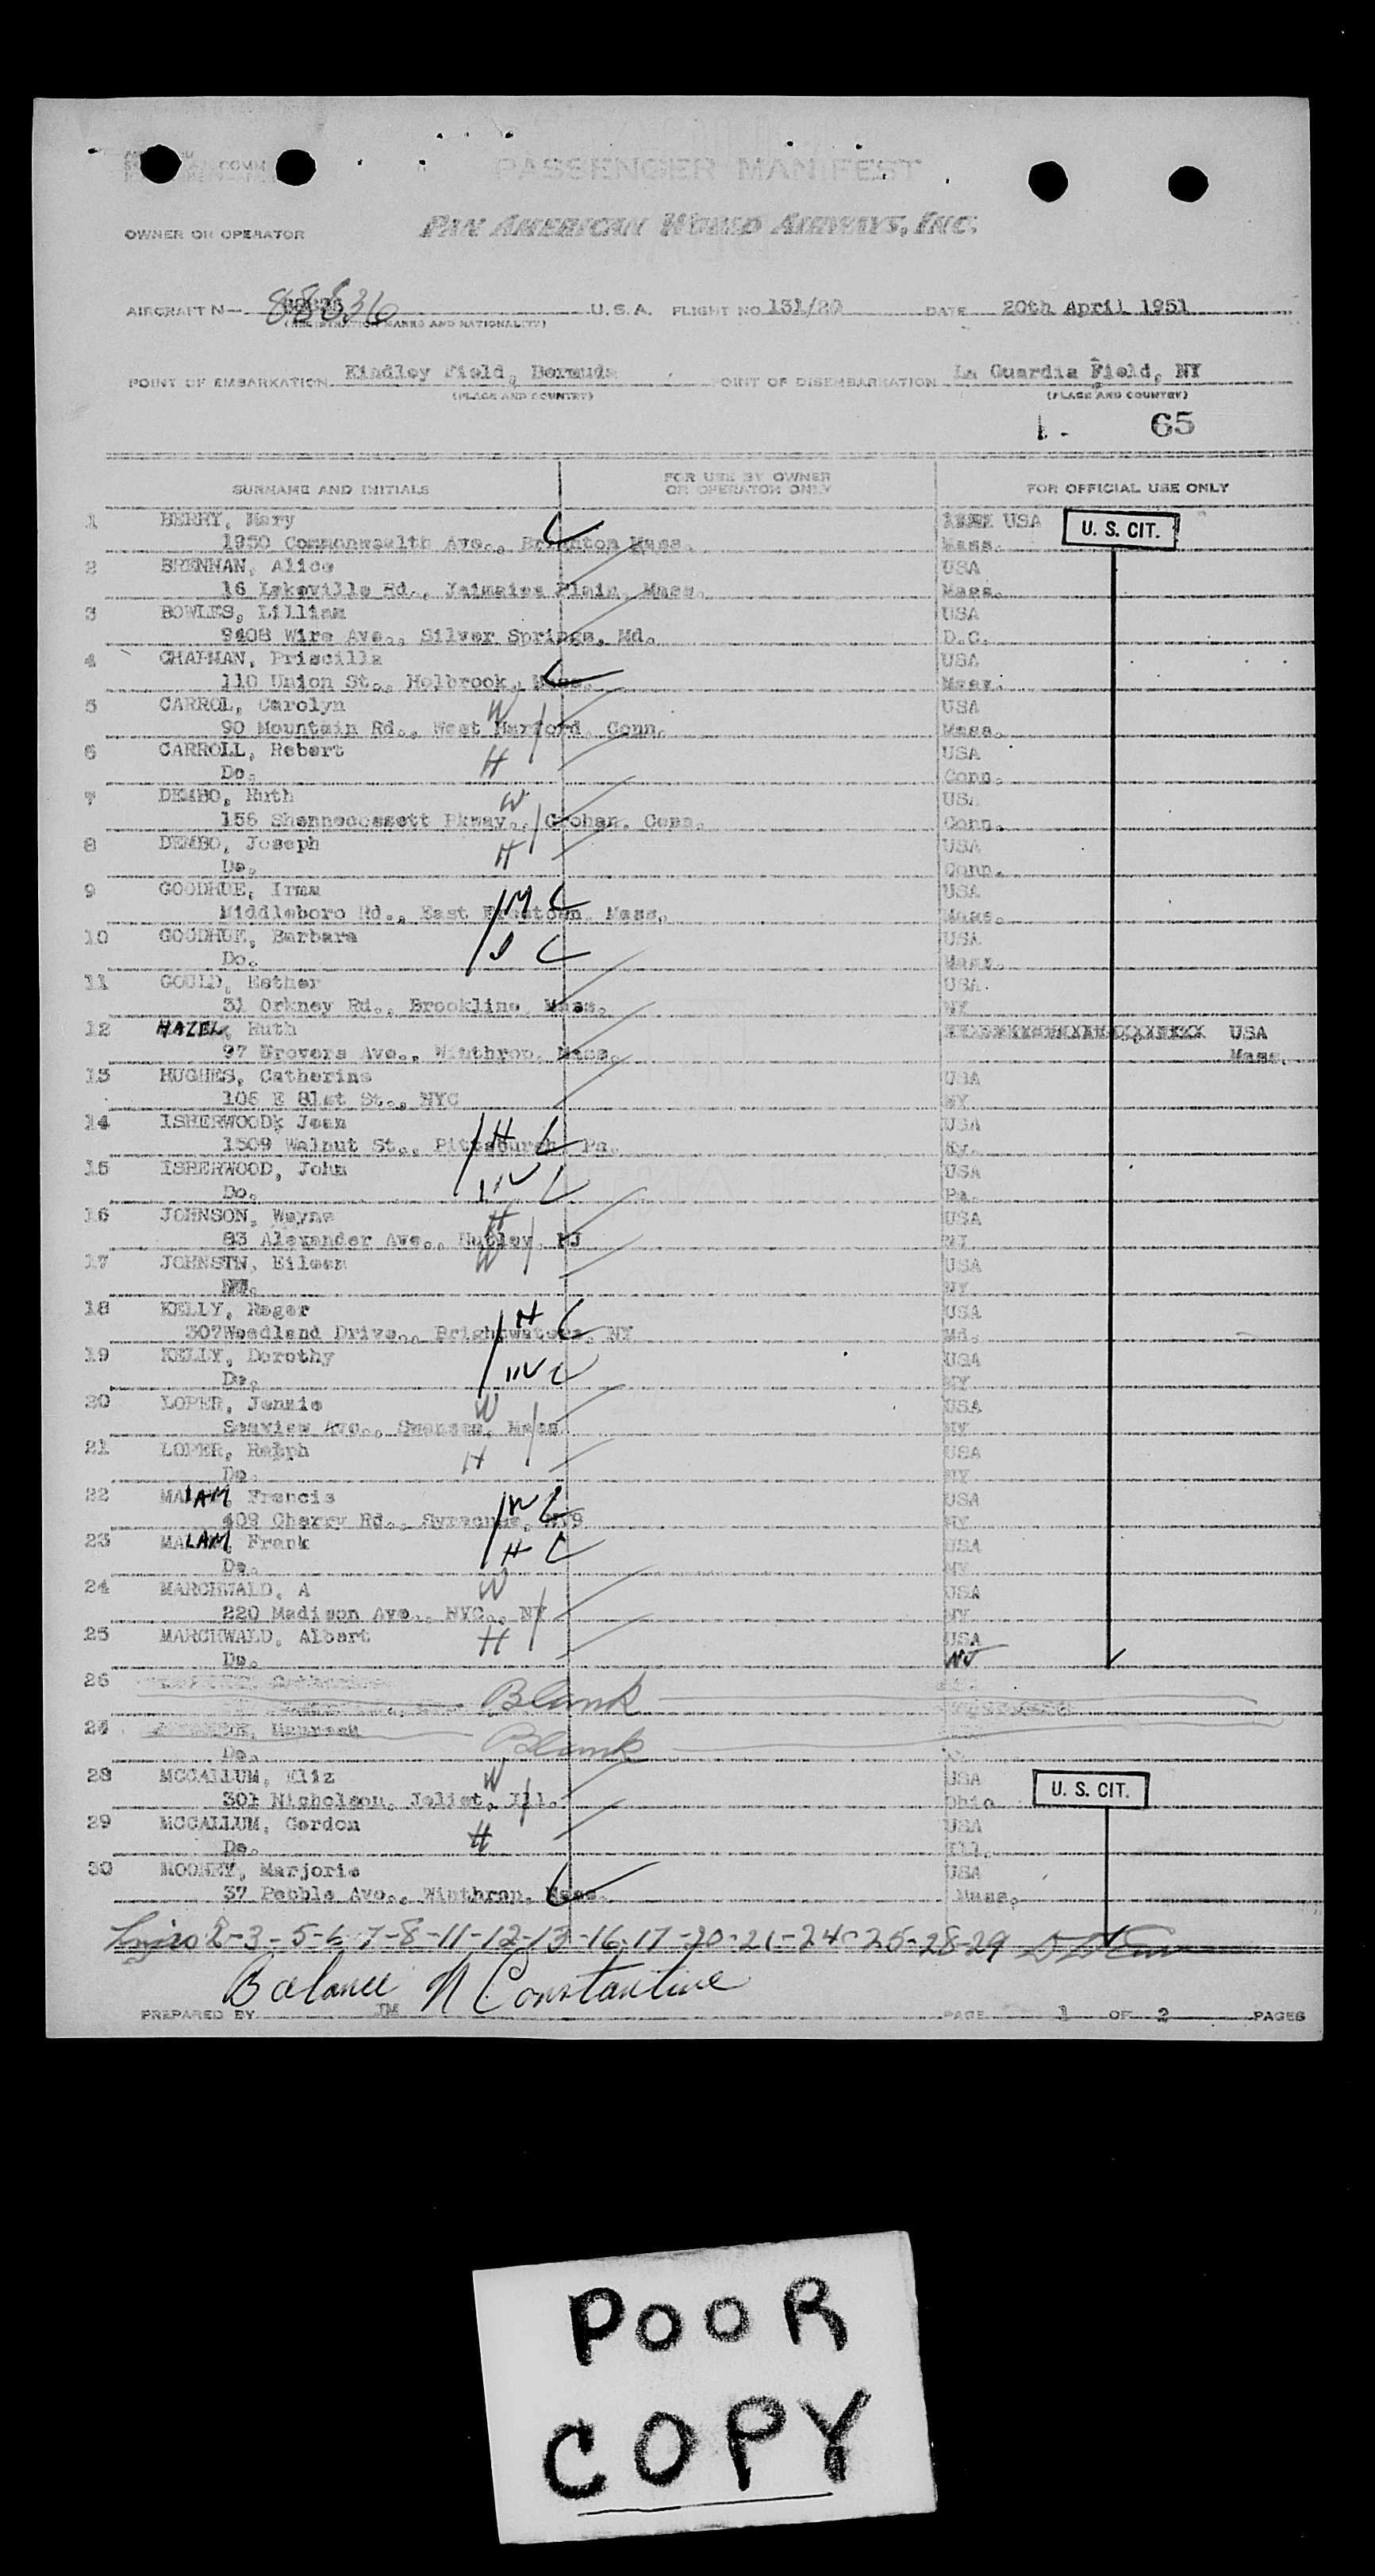 COMM
PASSENGER MANIFEST
OWNER OR OPERATOR PAN AMERICAN WORLD AIRWAYS, INC.
AIRCRAFT N— 88836 U.S.A. FLIGHT NO. 131/20 DATE 20th April 1951
(REGISTRATION MARKS AND NATIONALITY)
POINT OF EMBARKATION Kindley Field, Bermuda POINT OF DISEMBARKATION La Guardia Field, NY
(PLACE AND COUNTRY) (PLACE AND COUNTRY)
65
SURNAME AND INITIALS FOR USE BY OWNER OR OPERATOR ONLY FOR OFFICIAL USE ONLY
1 BERRY, Mary C USA U. S. CIT.
1950 Commonwealth Ave., Brighton Mass. Mass.
2 BRENNAN, Alice USA
16 Lakeville Rd., Jaimaica Plain, Mass. Mass.
3 BOWLES, Lilliam USA
9408 Wire Ave., Silver Springs, Md. D.C.
4 CHAPMAN, Priscilla C USA
110 Union St., Holbrook, Mass. Mass.
5 CARROL, Carolyn W USA
90 Mountain Rd., West Harford, Conn. Mass.
6 CARROLL, Robert H USA
Do. Conn.
7 DEMBO, Ruth W USA
156 Shennecossett Pkway., Conn. Conn.
8 DEMBO, Joseph H USA
Do. Conn.
9 GOODHUE, Irma M C USA
Middleboro Rd., East Freetown, Mass. Mass.
10 GOODHUE, Barbara D C USA
Do. Mass.
11 GOULD, Esther USA
31 Orkney Rd., Brookline, Mass. NY
12 HAZEL, Ruth USA
97 Grovers Ave., Winthrop, Mass. Mass.
13 HUGHES, Catherine USA
106 E 81st St., NYC NY
14 ISHERWOOD, Jean H C USA
1509 Walnut St., Pittsburgh, Pa. Ny.
15 ISHERWOOD, John W C USA
Do. Pa.
16 JOHNSON, Wayne H USA
83 Alexander Ave., Nutley, NJ NJ
17 JOHNSTN, Eileen W USA
NY
18 KELLY, Roger H C USA
307Woodland Drive., Brightwaters, NY Md.
19 KELLY, Dorothy W C USA
Do. NY
20 LOPER, Jennie W USA
Seaview Ave., Swansea, Mass NY
21 LOPER, Ralph H USA
Do. NY
22 MALAM, Francis W C USA
409 Cherry Rd., Syracuse, NY9 NY
23 MALAM, Frank H C USA
Do. NY
24 MARCHWALD, A W USA
220 Madison Ave., NYC., NY NY
25 MARCHWALD, Albert H USA
Do. NJ
26 Blank
27 Maureen Blank
Do.
28 MCCALLUM, Eliz W USA U. S. CIT.
301 Nicholson, Joliet, Ill. Ohio
29 MCCALLUM, Gordon H USA
Do. Ill.
30 MOONEY, Marjorie C USA
37 Pebble Ave., Winthrop, Mass. Mass.
2-3-5-6-7-8-11-12-13-16-17-20-21-24-25-28-29
Balance N Constantine
PREPARED BY JM PAGE 1 OF 2 PAGES
POOR
COPY